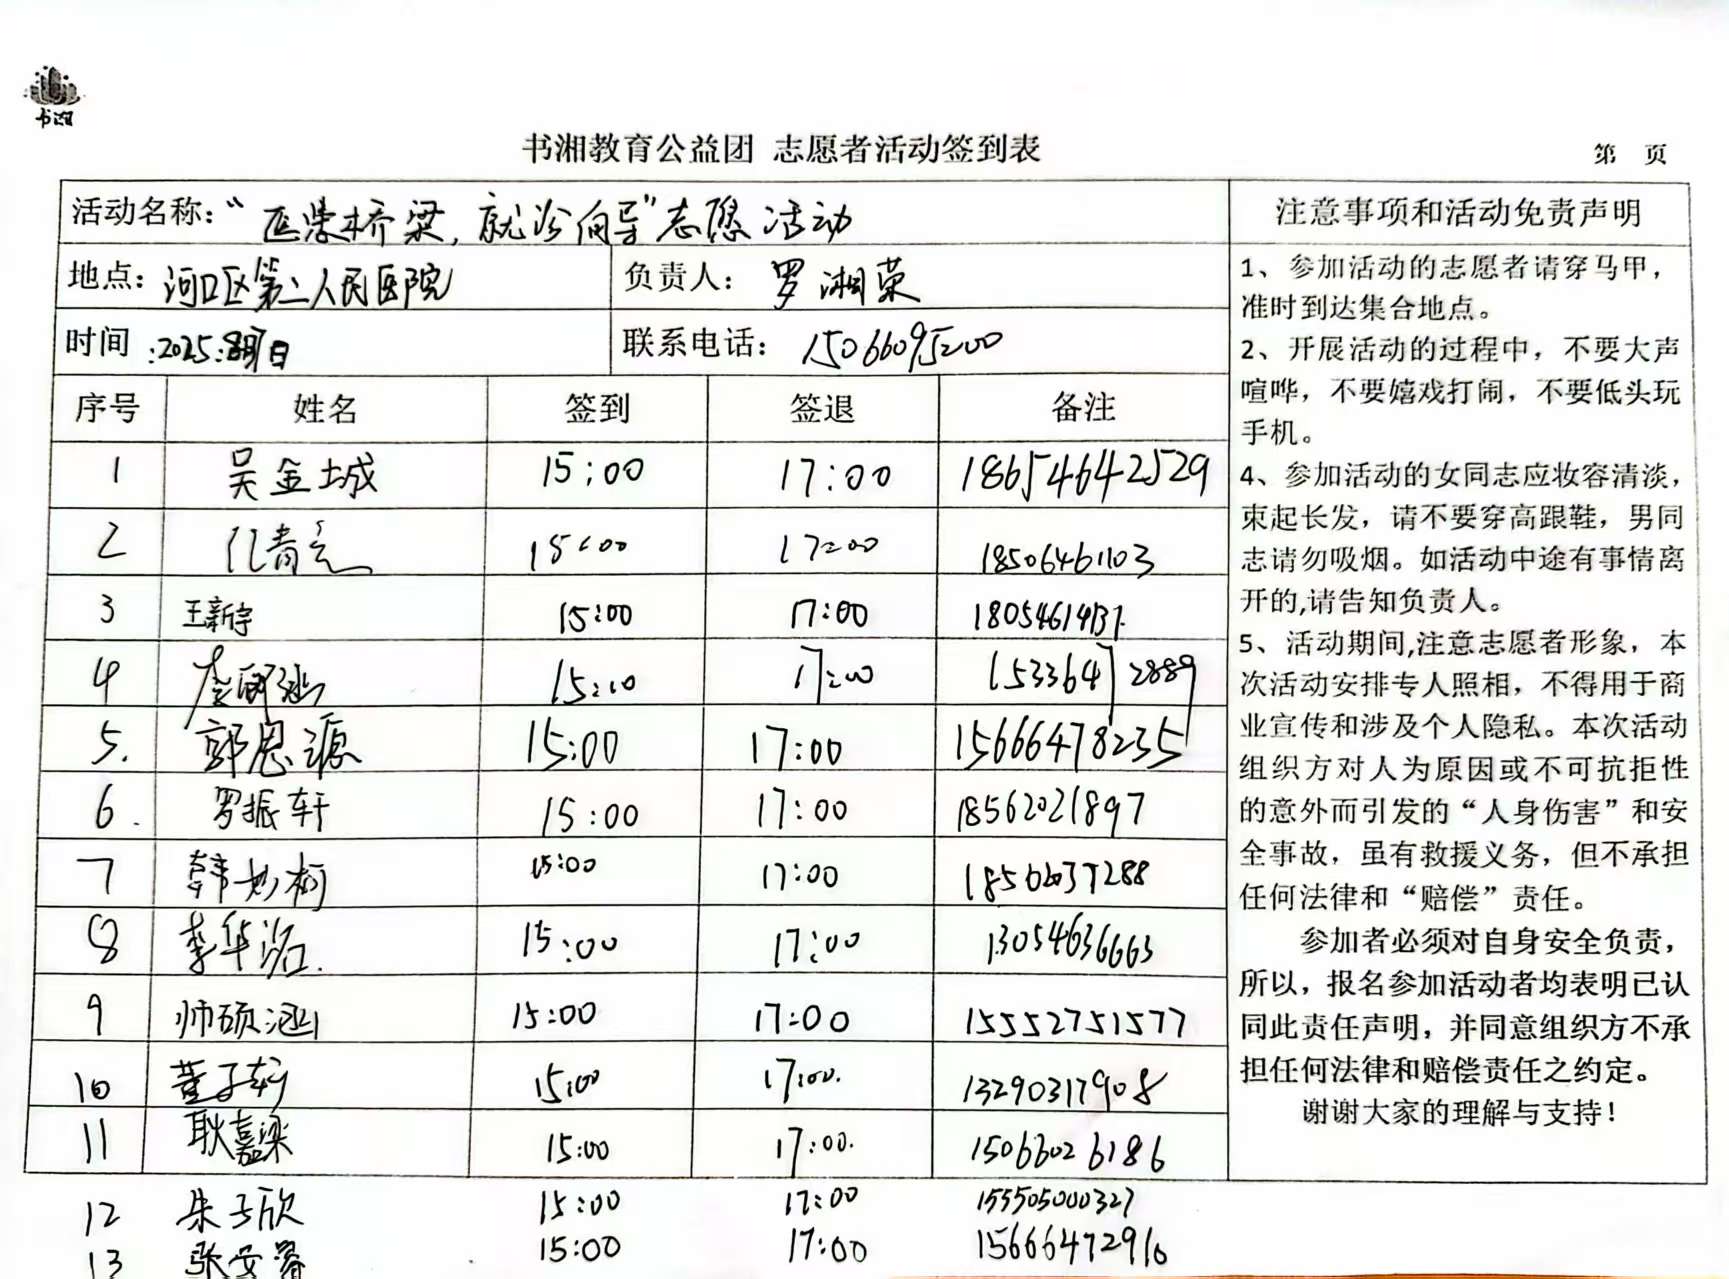 书湘
书湘教育公益团 志愿者活动签到表
第 页
活动名称：“医患桥梁，就诊向导”志愿活动
地点：河口区第二人民医院 负责人：罗湘荣
时间：2025.8月 日 联系电话：15066095200
序号 姓名 签到 签退 备注
1 吴金城 15:00 17:00 18654642529
2 15:00 17:00 18506461103
3 王新宇 15:00 17:00 18054614131
4 15:00 17:00 15336472889
5. 郭恩源 15:00 17:00 15666478235
6. 罗振轩 15:00 17:00 18562021897
7 韩妙柯 15:00 17:00
8 李华洺. 15:00 17:00 13054636663
9 帅硕涵 15:00 17:00 15552751577
10 董子轩 15:00 17:00. 13290317908
11 耿嘉梁 15:00 17:00. 15066026186
12 朱子欣 15:00 17:00 155505000327
13 15:00 17:00 15666472916
注意事项和活动免责声明
1、参加活动的志愿者请穿马甲，
准时到达集合地点。
2、开展活动的过程中，不要大声
喧哗，不要嬉戏打闹，不要低头玩
手机。
4、参加活动的女同志应妆容清淡，
束起长发，请不要穿高跟鞋，男同
志请勿吸烟。如活动中途有事情离
开的,请告知负责人。
5、活动期间,注意志愿者形象，本
次活动安排专人照相，不得用于商
业宣传和涉及个人隐私。本次活动
组织方对人为原因或不可抗拒性
的意外而引发的“人身伤害”和安
全事故，虽有救援义务，但不承担
任何法律和“赔偿”责任。
参加者必须对自身安全负责，
所以，报名参加活动者均表明已认
同此责任声明，并同意组织方不承
担任何法律和赔偿责任之约定。
谢谢大家的理解与支持！